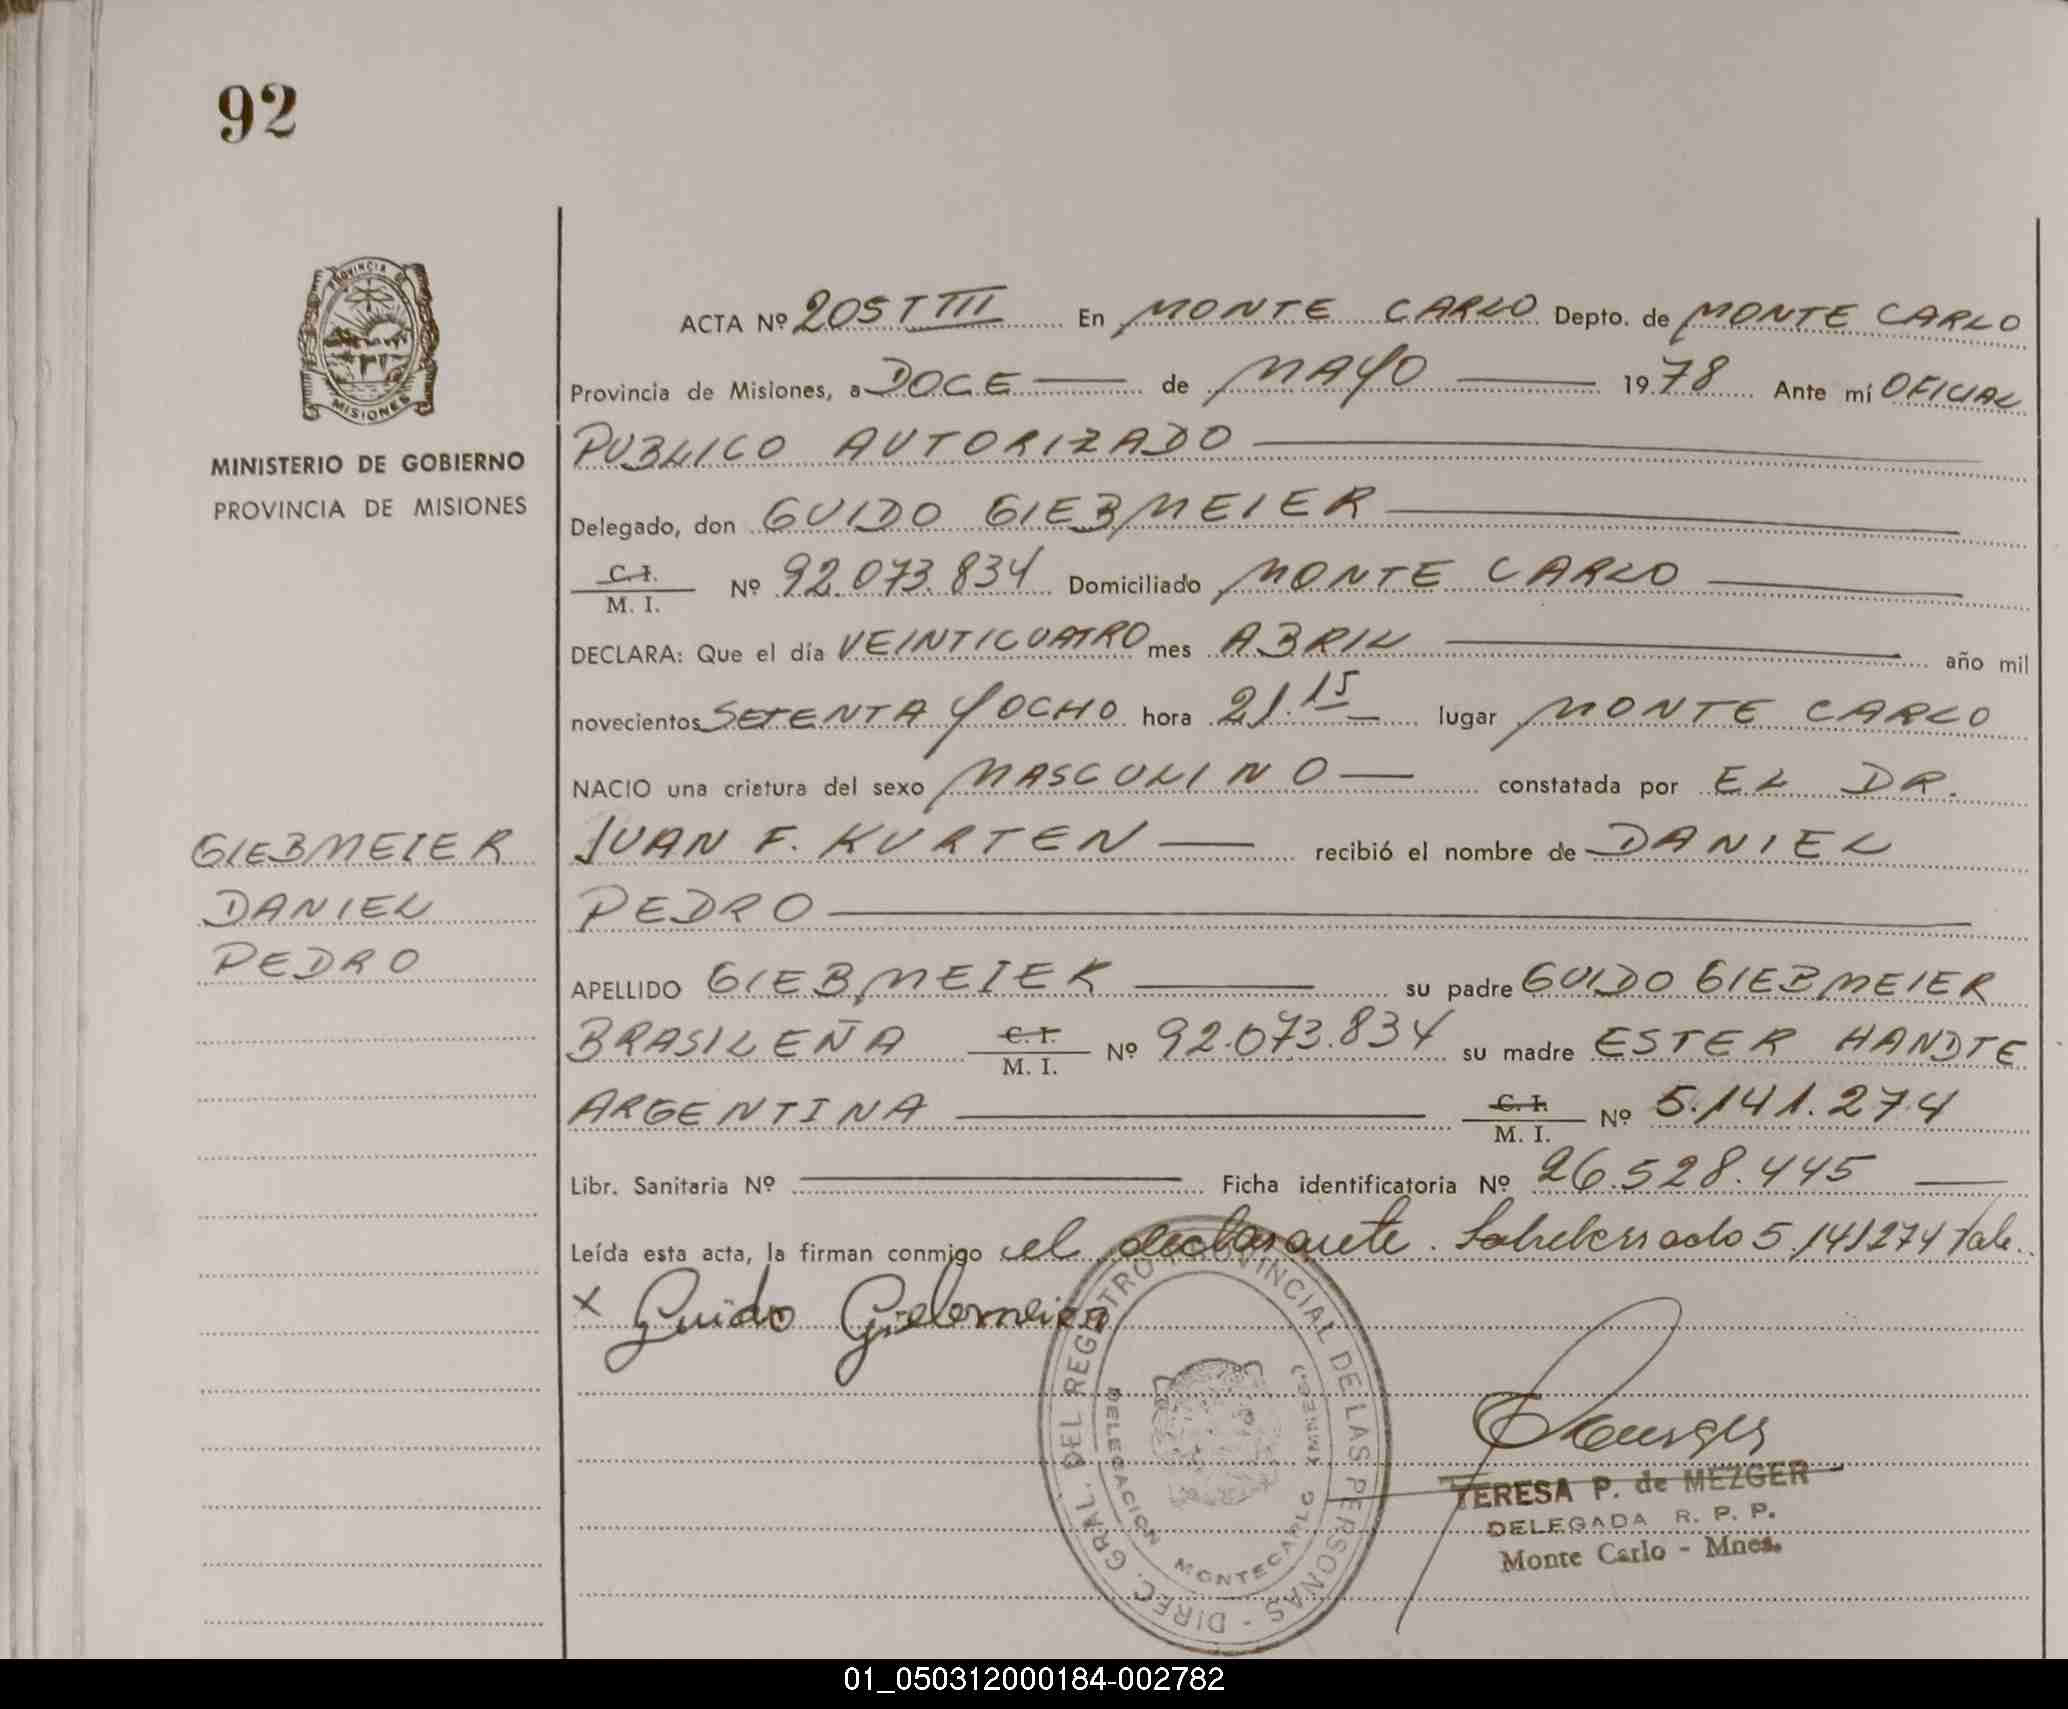 92
PROVINCIA DE
MISIONES
MINISTERIO DE GOBIERNO
PROVINCIA DE MISIONES
GIEBMEIER
DANIEL
PEDRO
ACTA Nº 205 T III En MONTE CARLO Depto. de MONTE CARLO
Provincia de Misiones, a DOCE de MAYO 1978 Ante mí OFICIAL
PUBLICO AUTORIZADO
Delegado, don GUIDO GIEBMEIER
C. I.
M. I. Nº 92.073.834 Domiciliado MONTE CARLO
DECLARA: Que el día VEINTICUATRO mes ABRIL año mil
novecientos SETENTA Y OCHO hora 21.15 lugar MONTE CARLO
NACIO una criatura del sexo MASCULINO constatada por EL DR.
JUAN F. KURTEN recibió el nombre de DANIEL
PEDRO
APELLIDO GIEBMEIER su padre GUIDO GIEBMEIER
BRASILEÑA C. I. M. I. Nº 92.073.834 su madre ESTER HANDTE
ARGENTINA C. I. M. I. Nº 5.141.274
Libr. Sanitaria Nº Ficha identificatoria Nº 26.528.445
Leída esta acta, la firman conmigo el declarante. Sobreberrado 5.141274 Vale.
x Guido Giebmeier
DIREC. GRAL. DEL REGISTRO PROVINCIAL DE LAS PERSONAS -
DELEGACION MONTECARLO
TERESA P. de MEZGER
DELEGADA R. P. P.
Monte Carlo - Mnes.
01_050312000184-002782